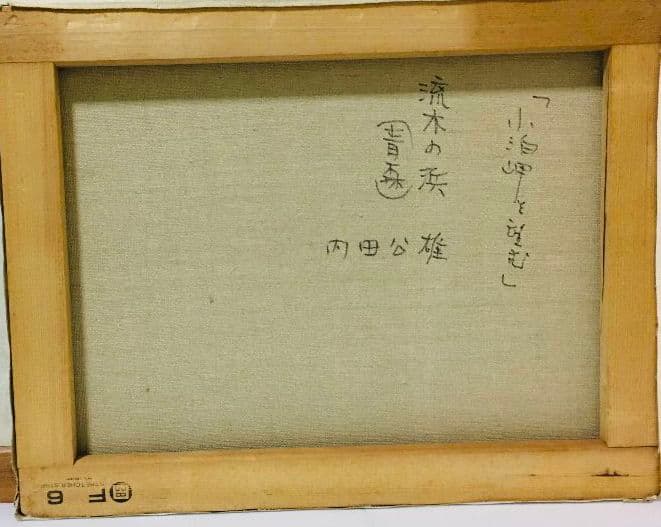 「小泊岬を望む」
流木の浜
(青森)
内田公雄
F6